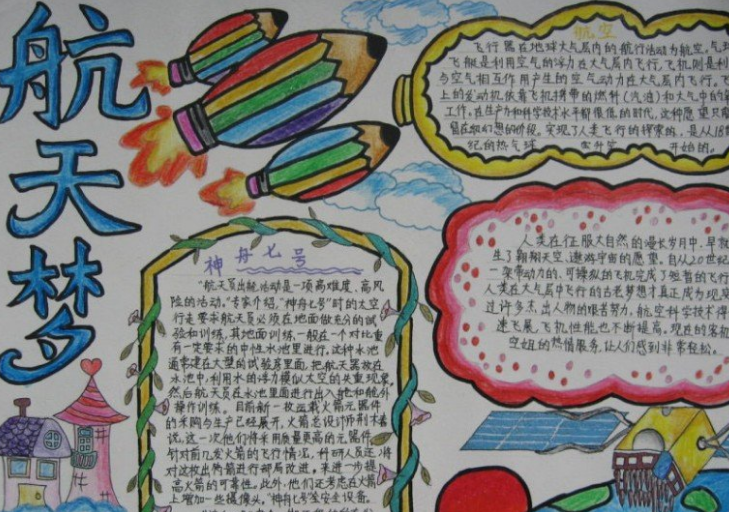 航天梦
航空
飞行器在地球大气层内的航行活动为航空。气球
飞艇是利用空气的浮力在大气层内飞行,飞机则是利
与空气相互作用产生的空气动力在大气层内飞行。飞
上的发动机依靠飞机携带的燃料(汽油)和大气中的氧
工作。在生产力和科学技术水平都很低的时代,这种愿望只能
留在
想的阶段。实现了人类飞行的探索的,是从18世
纪的热气球
升空
开始的。
人类在征服大自然的漫长岁月中,早就
生了翱翔天空、遨游宇宙的愿望。自从20世纪
一架带动力的、可操纵的飞机完成了短暂的飞行
人类在大气层中飞行的古老梦想才真正成为现实
过许多杰出人物的艰苦努力,航空科学技术得
速飞展,飞机性能也不断提高。现在的客机
空姐的热情服务,让人们感到非常轻松。
神舟七号
“航天员出舱活动是一项高难度、高风
险的活动。”专家介绍,“神舟七号”时的太空
行走要求航天员必须在地面做充分的试
验和训练,其地面训练一般在一个对比重
有一定要求的中性水池里进行。这种水池
通常建在大型的试验房里面,把航天器放在
水池中,利用水的浮力模拟太空的失重现象,
然后航天员在水池里面进行出入舱和舱外
操作训练。目前新一枚运载火箭元器件
的采购与生产已经展开,火箭总设计师荆木春
说,这一次他们将采用质量更高的元器件,
针对前几发火箭的飞行情况,科研人员还将
对这枚出俩箭进行部局改进,来进一步提
高火箭的可靠性。此外,他们还考虑在火箭
上增加一些摄像头,“神舟七号”全安全设备。